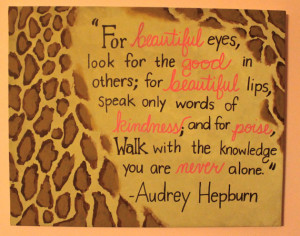 "For beautiful eyes,
look for the good in
others; for beautiful lips,
speak only words of
kindness; and for poise,
Walk with the knowledge
you are never alone."
-Audrey Hepburn